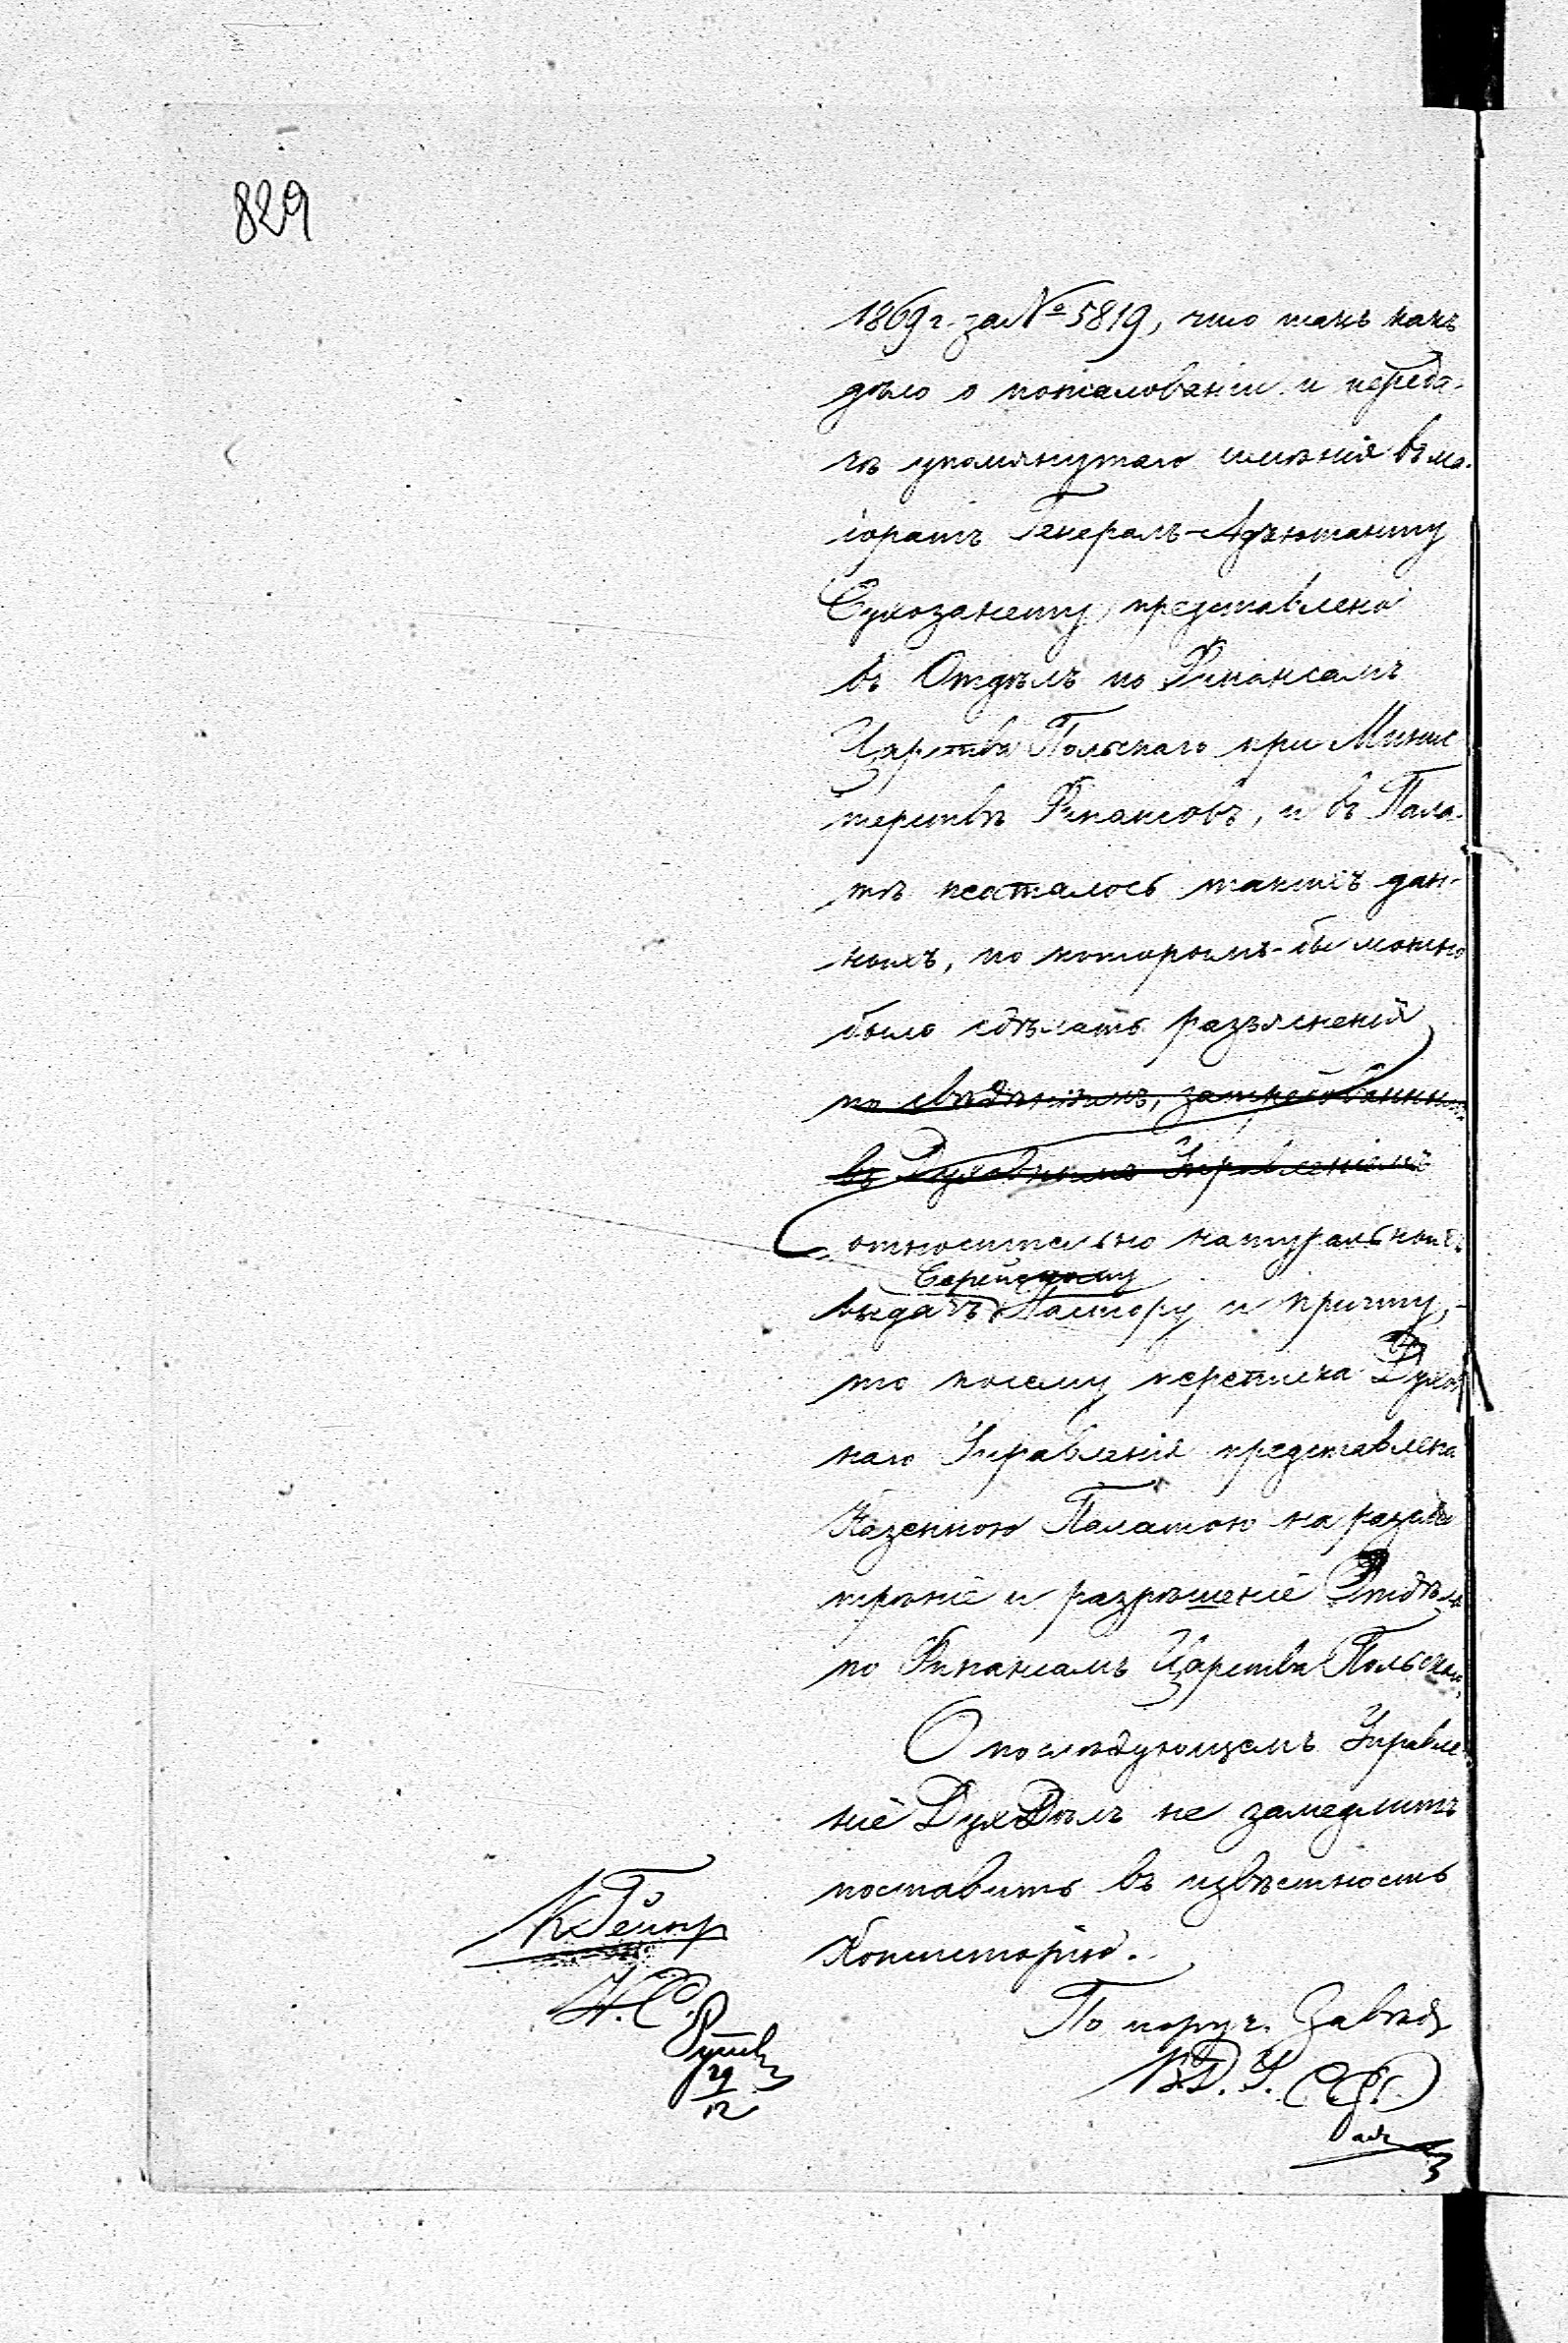 829
1869 г. за № 5819, что такъ какъ
дѣло о пожалованіи и переда-
чѣ упомянутаго имѣнія въ ма-
іоратъ Генералъ-Адъютанту
Сухозанету, представлено
въ Отдѣлъ по Финансамъ
Царства Польскаго при Минис
терствѣ Финансовъ, и въ Пала-
тѣ неосталось такихъ дан-
ныхъ, по которымъ-бы можно
было сдѣлать разъясненія
по свѣдѣніямъ, затребованнымъ
въ Духовнымъ Управленіемъ
относительно натуральныхъ
выдачъ Пастору и причту,-
то посему переписка Духов
наго Управленія представлена
Казенною Палатою на разсмо
трѣніе и разрѣшеніе Отдѣла
по Финансамъ Царства Польскаго,
О послѣдующемъ Управле
ніе Дух Дѣлъ не замедлитъ
поставить въ извѣстность
Консисторію.
По поруч. Завѣд
Н. С.
29
12